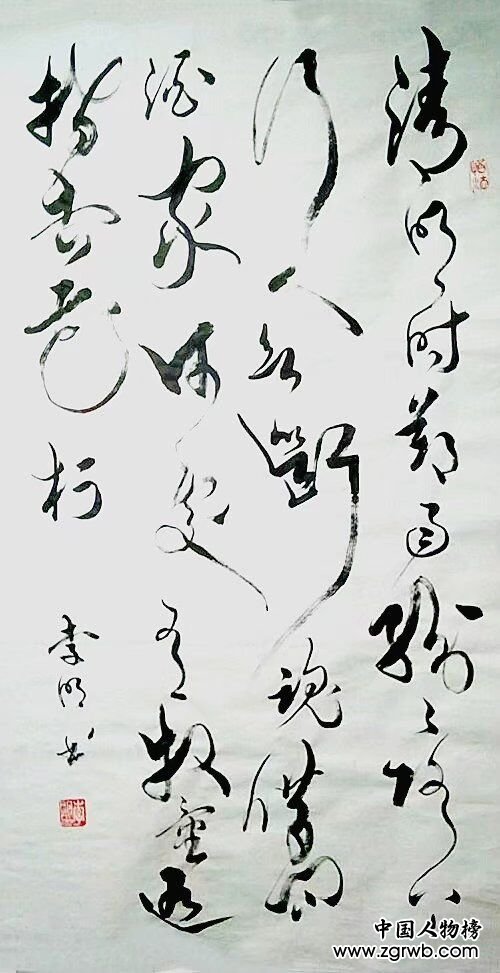 清明时节雨纷纷路上
行人欲斷魂借问
酒家何处有牧童遥
指杏花村
李明书
中国人物榜
www.zgrwb.com